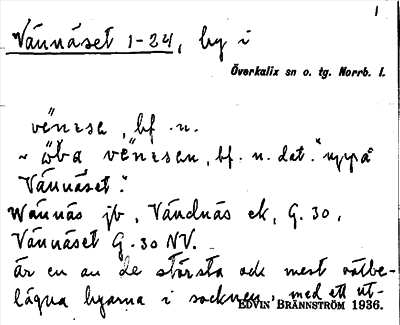 1
Vännäset 1-24, by i
Överkalix sn o. tg. Norrb. l.
vënɛsa, bf. n.
~ öba vënɛsen, bf. n. dat. "uppå
Vännäset".
Wännäs jb, Vändnäs ek, G. 30,
Vännäset G. 30 NV.
är en av de största och mest välbe-
lägna byarna i socknen, med ett ut-
EDVIN BRÄNNSTRÖM 1936.